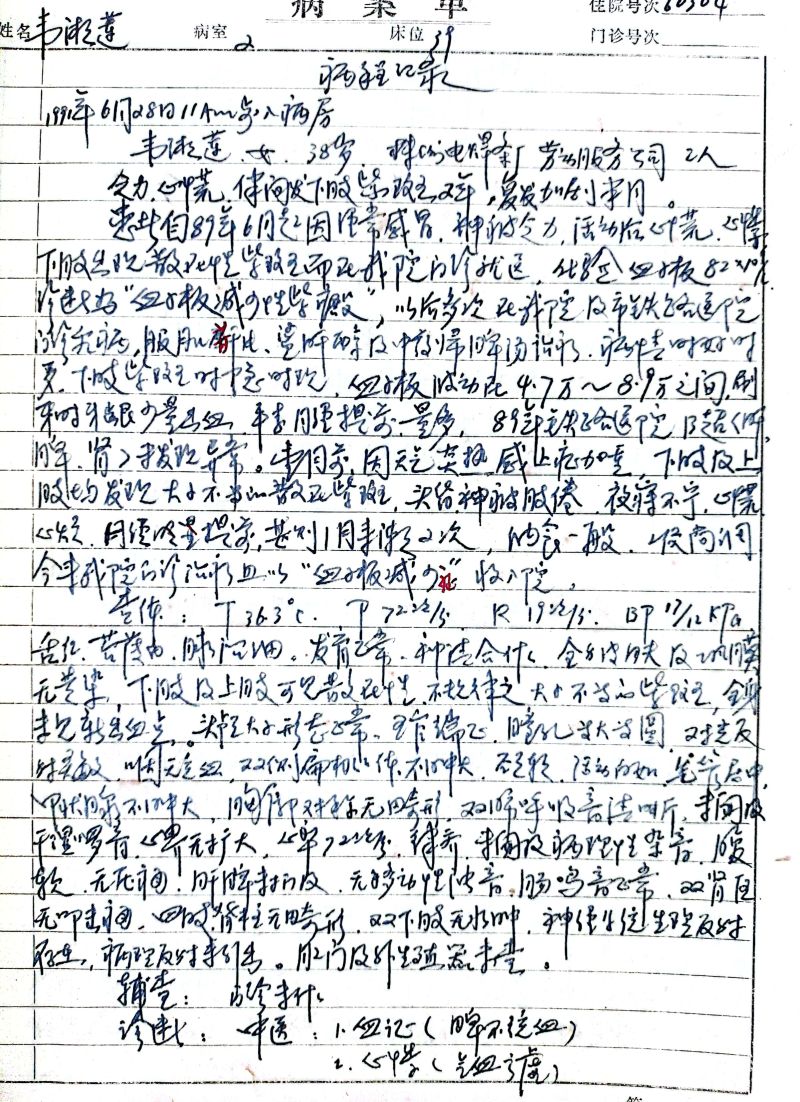 病案单
住院号次 60304
姓名 韦湘莲 病室 2 床位 39 门诊号次
病程记录
1991年6月28日11Am 步入病房
韦湘莲 女 38岁 电焊条厂劳动服务公司 工人
乏力,心慌,伴间发下肢紫斑2年,复发加剧半月。
患者自89年6月起因经常感冒,神疲乏力,活动后心慌,心悸,
下肢出现散在性紫斑而在我院门诊就医,化验血小板82×10⁹/L
诊断为“血小板减少性紫癜”,以后多次在我院及市铁路医院
门诊就诊,服肌苷片、及中药归脾汤治疗,病情时好时
变,下肢紫斑时隐时现,血小板波动在4.7万~8.9万之间,刷
牙时牙龈少量出血,平素月经提前、量多,89年在铁路医院B超肝
脾、肾未发现异常。半月前,因天气炎热,感上症加重,下肢及上
肢均发现大小不等的散在紫斑,头昏神疲肢倦,夜寐不宁,心慌
心烦,月经明显提前,甚则1月来潮2次,纳食一般,二便尚调
今来我院门诊治疗且以“血小板减少症”收入院。
查体:T 36.3℃ P 72次/分 R 19次/分 BP 17/12 KPa
舌红,苔薄白,脉沉细。发育正常,神志合作,全身皮肤及巩膜
无黄染,下肢及上肢可见散在性、不规律之大小不等的紫斑,全身
未见新出血点。头颅大小形态正常,五官端正,瞳孔等大等圆,对光反
射灵敏,咽无充血,双侧扁桃体不肿大,颈软,活动自如,气管居中,
甲状腺不肿大,胸廓对称无畸形,双肺呼吸音清晰,未闻及
干湿啰音,心界无扩大,心率72次/分,律齐,未闻及病理性杂音,腹
软,无压痛,肝脾未扪及,无移动性浊音,肠鸣音正常,双肾区
无叩击痛,四肢脊柱无畸形,双下肢无水肿,神经系统生理反射
存在,病理反射未引出。肛门及外生殖器未查。
辅查:
诊断:中医:1.血证(脾不统血)
2.心悸(气血亏虚)